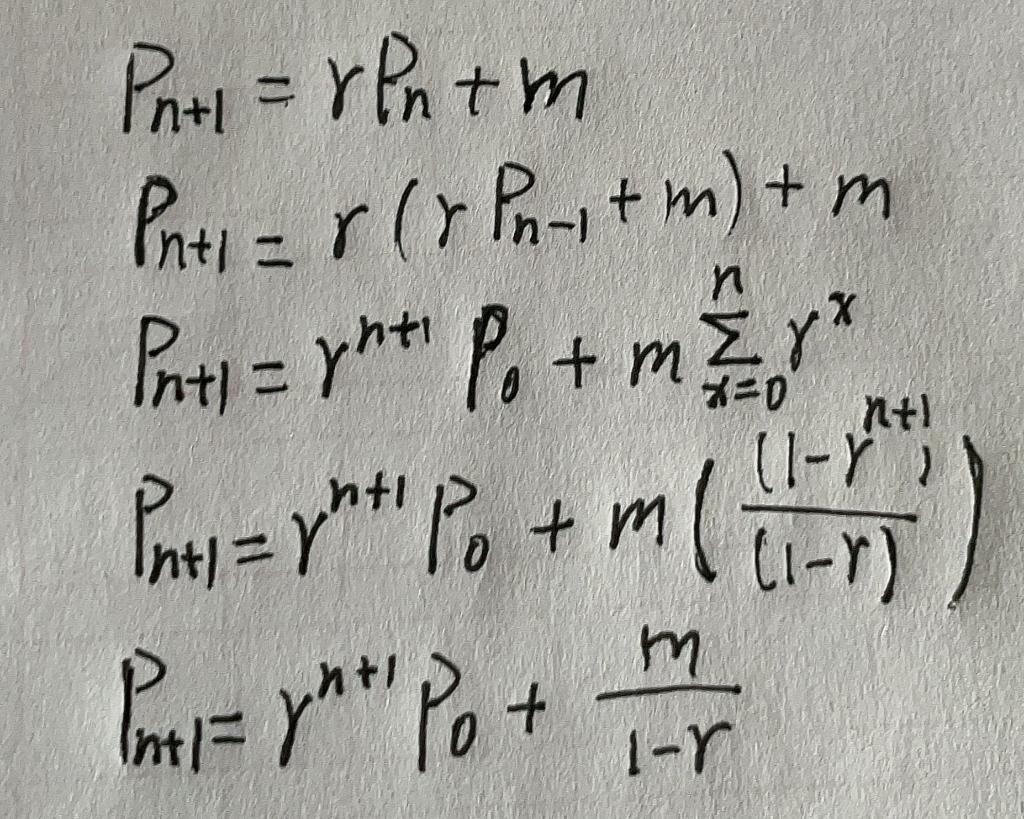 P_{n+1} = rP_n + m
P_{n+1} = r(rP_{n-1} + m) + m
P_{n+1} = r^{n+1} P_0 + m \sum_{x=0}^{n} r^x
P_{n+1} = r^{n+1} P_0 + m \left( \frac{(1-r^{n+1})}{(1-r)} \right)
P_{n+1} = r^{n+1} P_0 + \frac{m}{1-r}